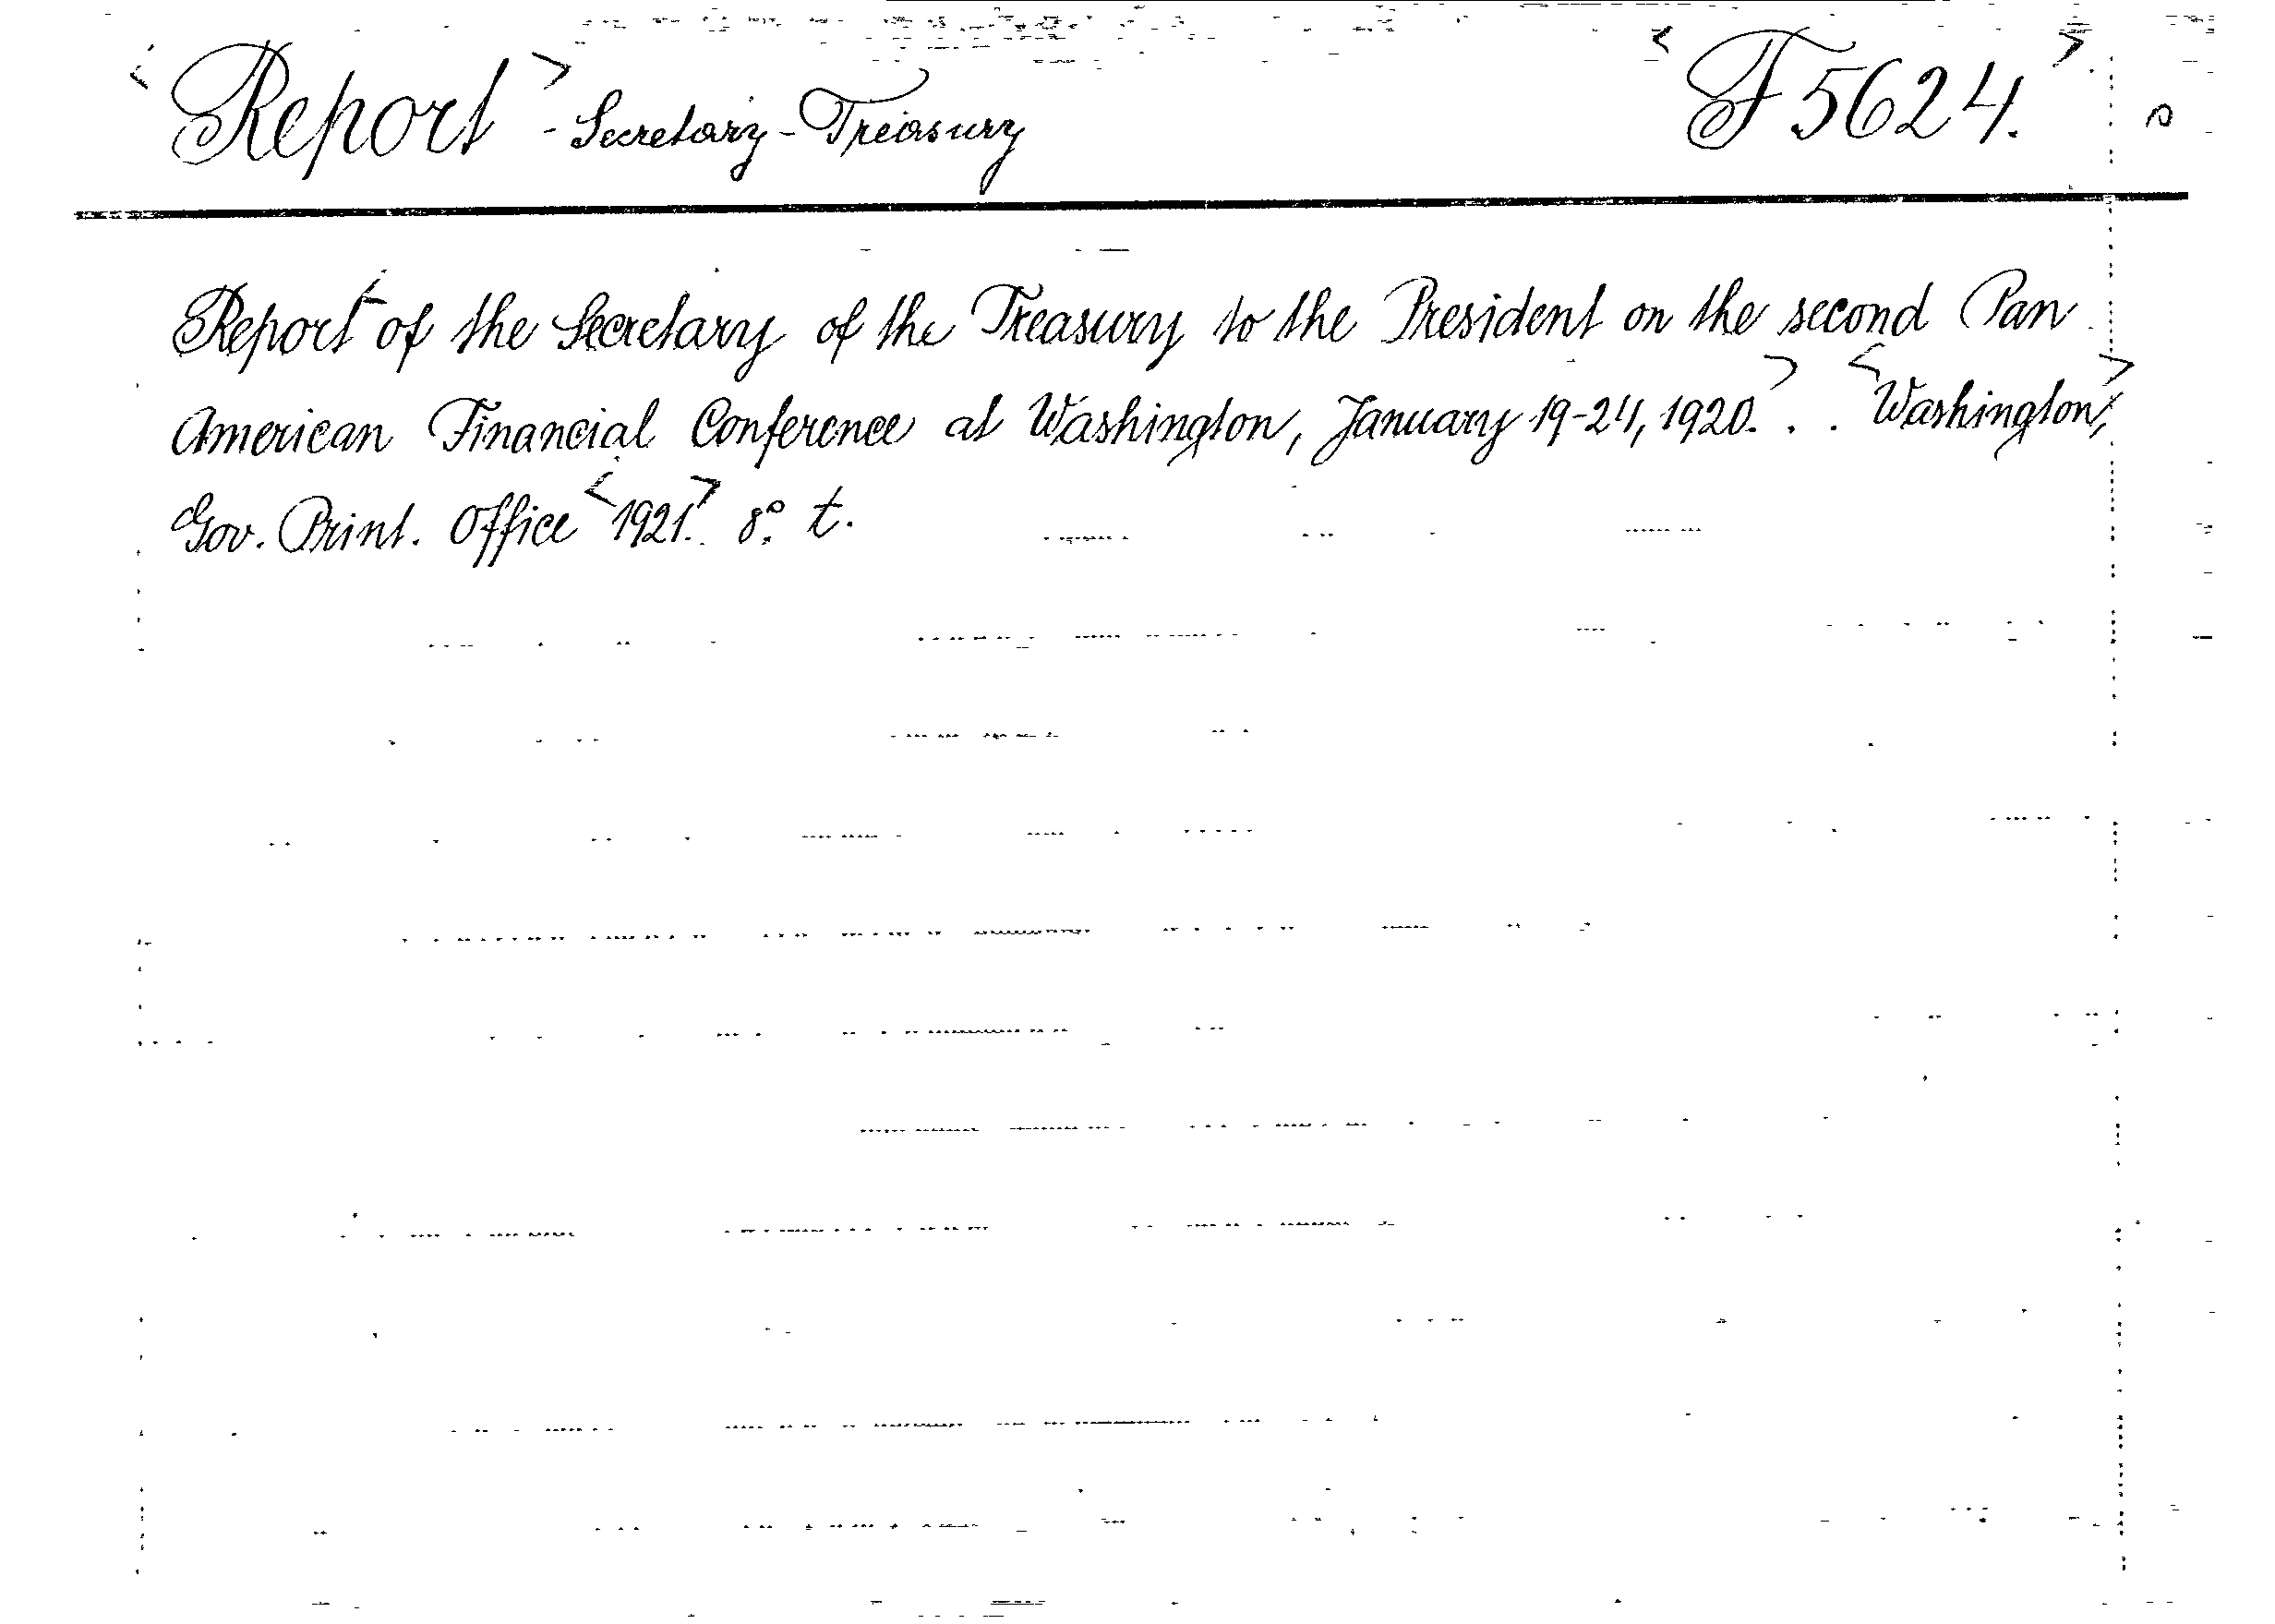 <Report> - Secretary - Treasury <F 5624.>
Report <of the Secretary of the Treasury to the President on the second Pan
American Financial Conference at Washington, January 19-24, 1920.> . . <Washington,>
Gov. Print. Office <1921.> 8° t.